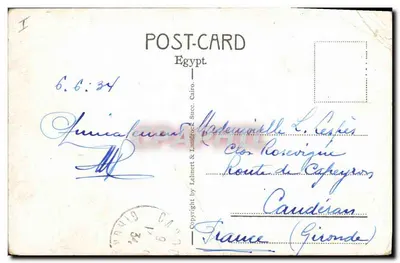 I
POST-CARD
Egypt.
6.6:34
Amicalement
Copyright by Lehnert & Landrock Succ. Cairo.
Mademoiselle L. Lespès
Clos Rossignol
Route de
Caudéran
France (Gironde)